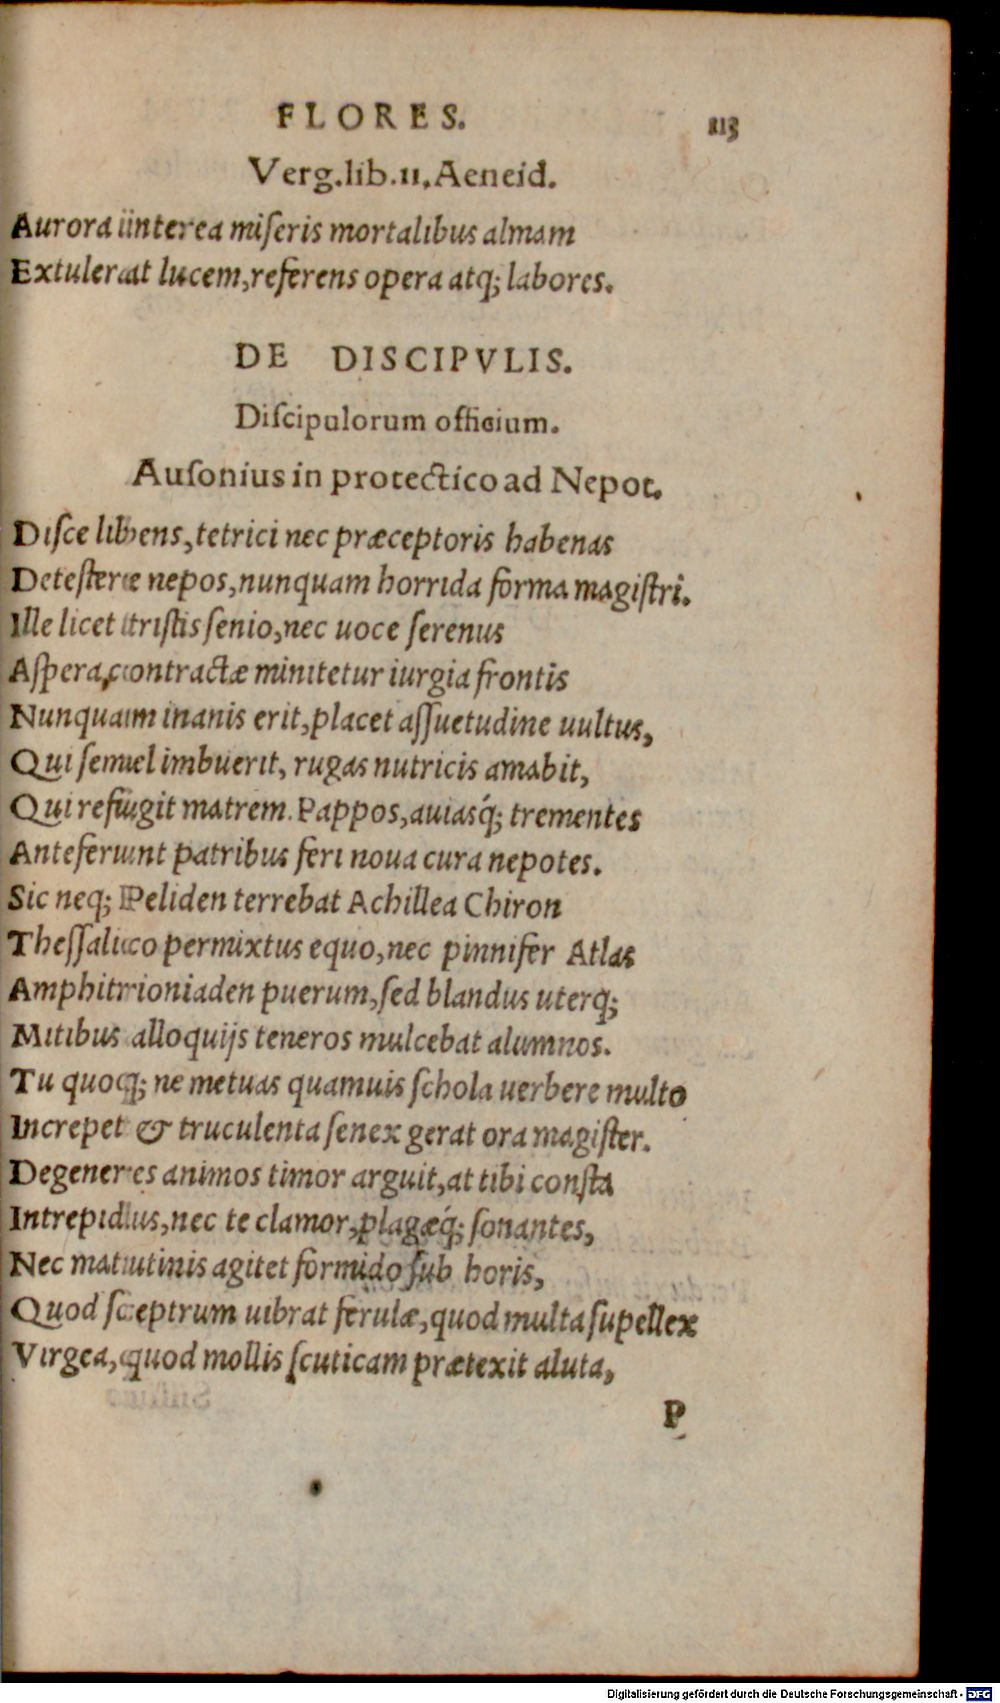 FLORES. 113
Verg.lib.11.Aeneid.
Aurora interea miſeris mortalibus almam
Extulerat lucem,referens opera atq; labores.
DE DISCIPVLIS.
Diſcipulorum officium.
Auſonius in protectico ad Nepot.
Diſce libens,tetrici nec præceptoris habenas
Deteſtere nepos,nunquam horrida forma magiſtri.
Ille licet triſtis ſenio,nec uoce ſerenus
Aſpera,contractæ minitetur iurgia frontis
Nunquam inanis erit,placet aſſuetudine uultus,
Qui ſemel imbuerit, rugas nutricis amabit,
Qui refugit matrem. Pappos,auiasq́; trementes
Anteferunt patribus ſeri noua cura nepotes.
Sic neq; Peliden terrebat Achillea Chiron
Theſſalico permixtus equo,nec pinnifer Atlas
Amphitrioniaden puerum,ſed blandus uterq;
Mitibus alloquijs teneros mulcebat alumnos.
Tu quoq; ne metuas quamuis ſchola uerbere multo
Increpet & truculenta ſenex gerat ora magiſter.
Degeneres animos timor arguit,at tibi conſta
Intrepidus,nec te clamor,plagæq́; ſonantes,
Nec matutinis agitet formido ſub horis,
Quod ſceptrum uibrat ferulæ,quod multa ſupellex
Virgea,quod mollis ſcuticam prætexit aluta,
P
Digitalisierung gefördert durch die Deutsche Forschungsgemeinschaft - DFG